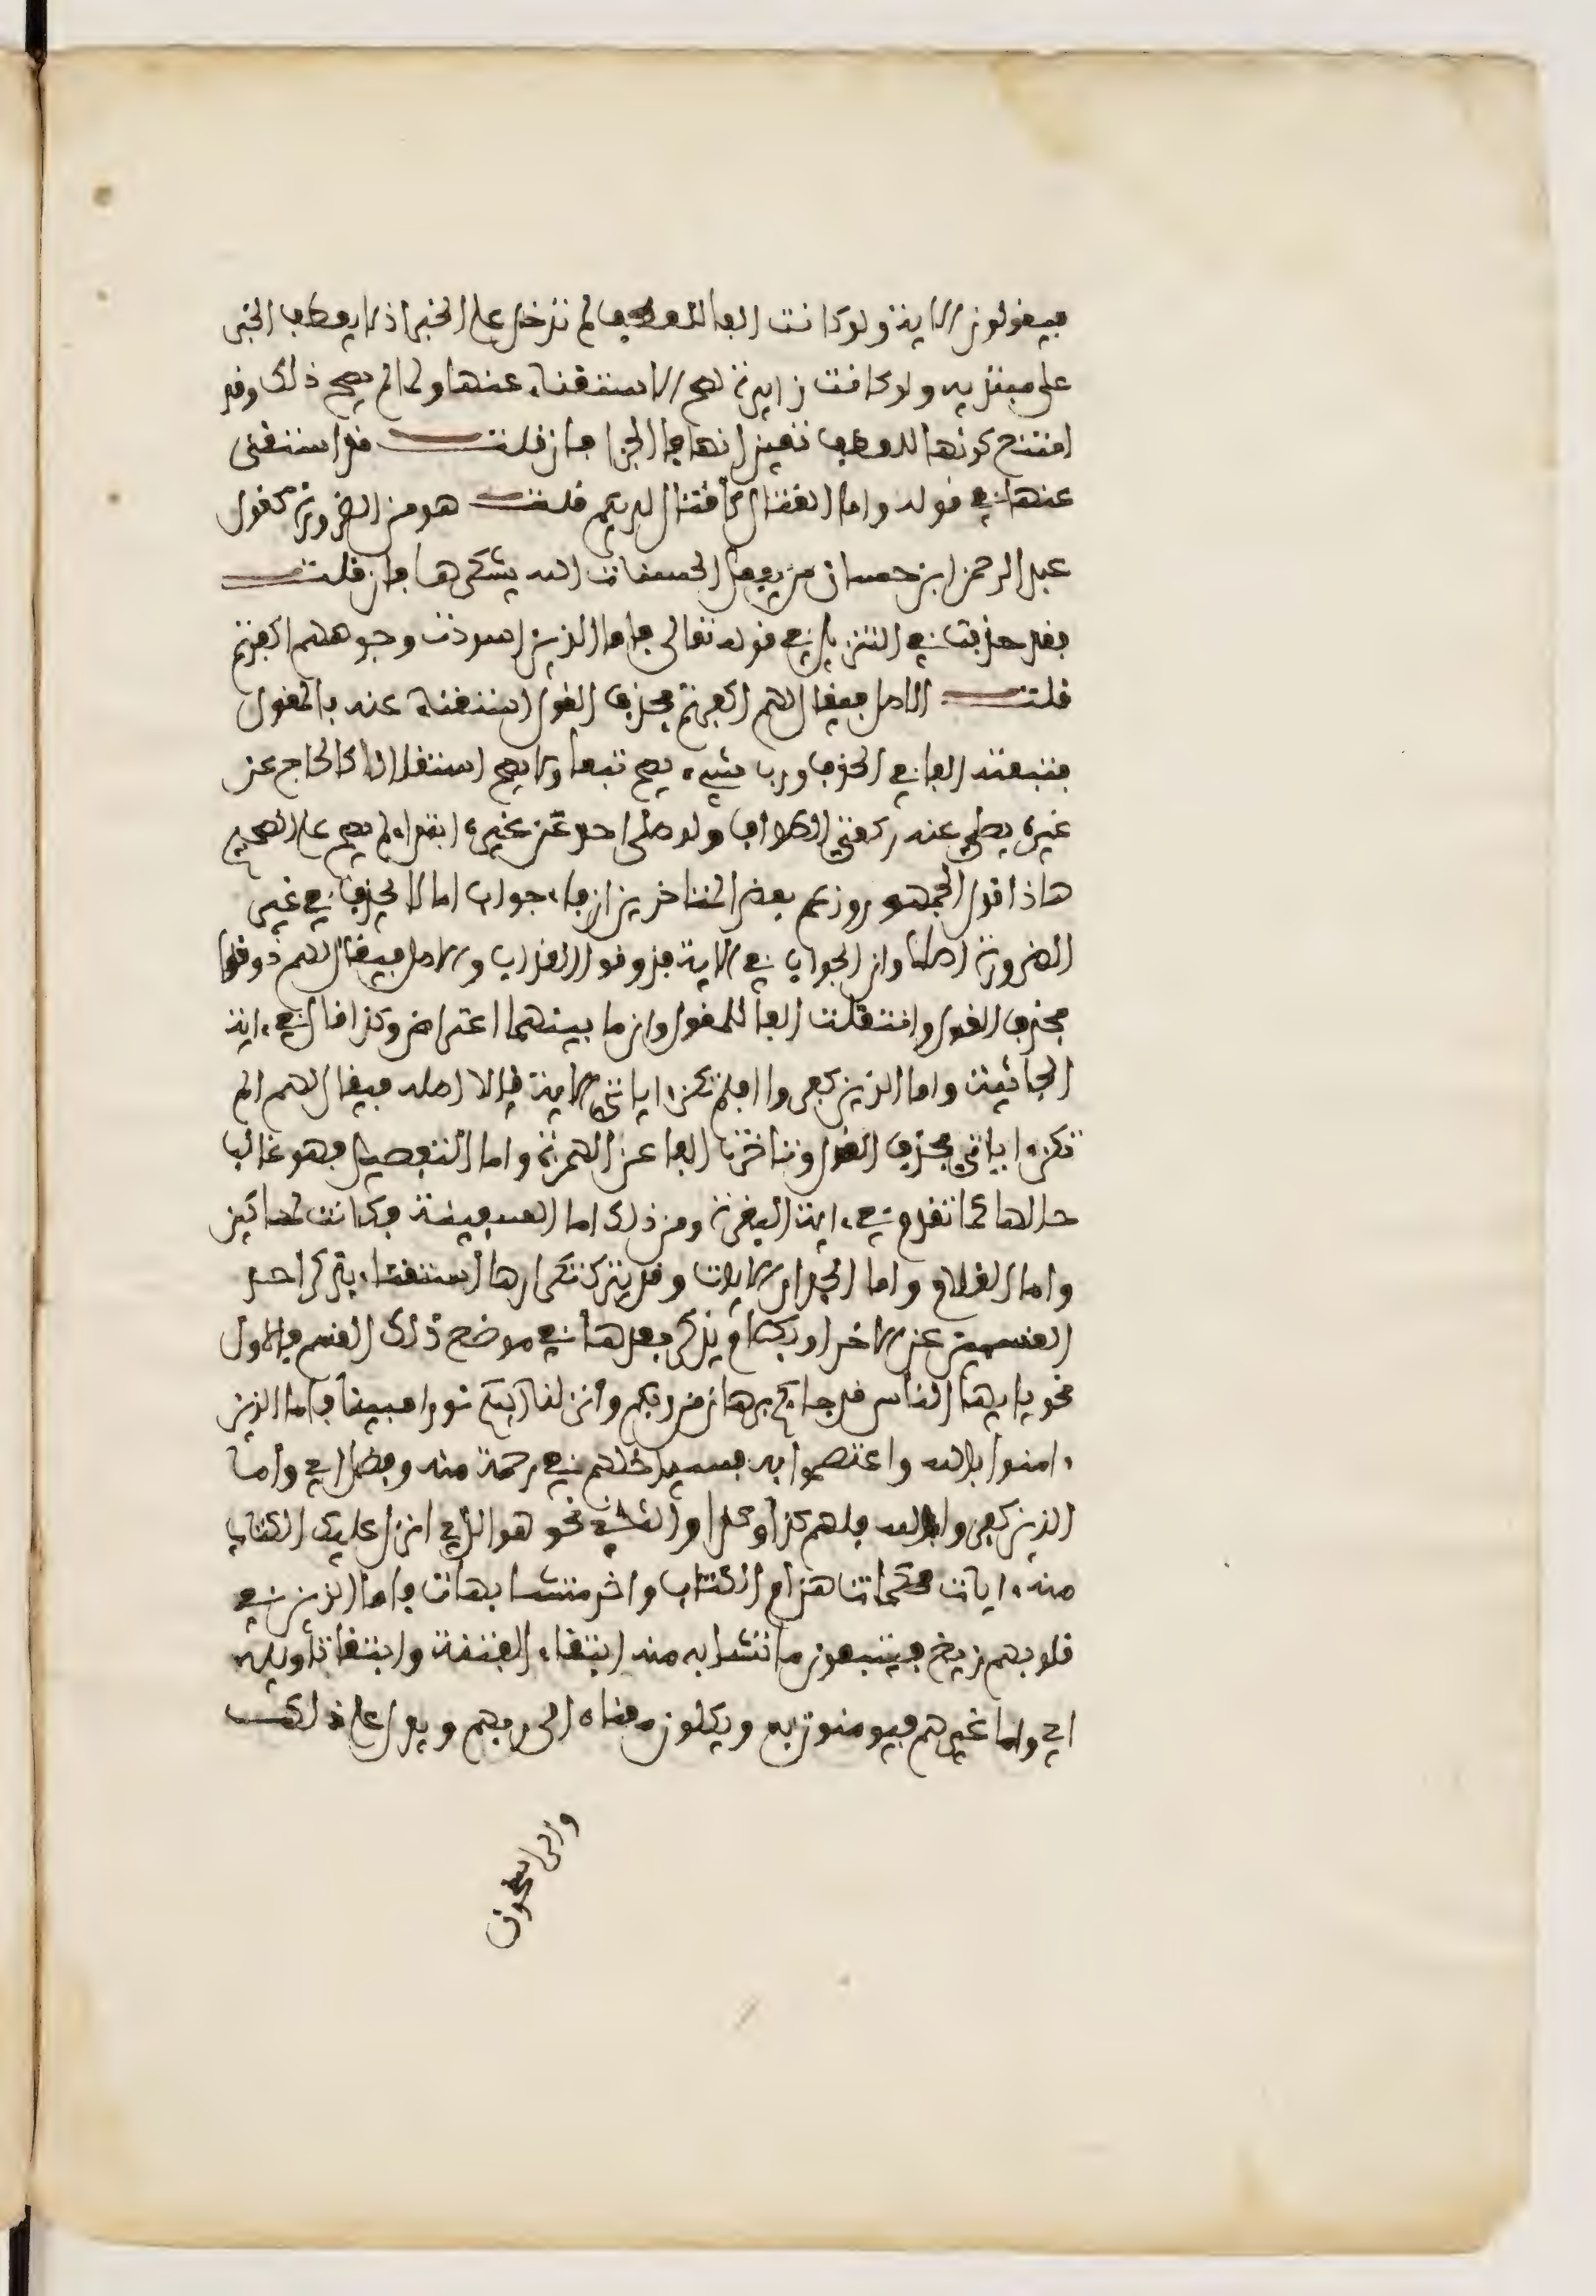 فيقولون الاية ولو كانت الفا للعطف لم تدخل على الخبر اذ لا يعطف الخبر
على مبتدئه ولو كانت زايدة لصح الاستغناء عنها ولما لم يصح ذلك وقد
امتنع كونها للعطف تعين انها فا الجزا فان قلت قد استغنى
عنها في قوله فاما القتال لا قتال لديكم قلت هو من الضرورة كقول
عبد الرحمن ابن حسان من يفعل الحسنات الله يشكرها فان قلت
فقد حذفت في التنزيل في قوله تعالى فاما الذين اسودت وجوههم اكفرتم
قلت الاصل فيقال لهم اكفرتم فحذف القول استغناء عنه بالمقول
فتبعته الفا في الحذف ورب شيء يصح تبعا ولا يصح استقلالا كالحاج عن
غيره يصلي عنه ركعتي الطواف ولو صلى احد عن غيره ابتداء لم يصح على الصحيح
هاذا قول الجمهور وزعم بعض المتاخرين ان فاء جواب اما لا تحذف في غير
الضرورة اصلا وان الجواب في الاية فذوقوا العذاب والاصل فيقال لهم ذوقوا
فحذف القول وانتقلت الفا للمقول وان ما بينهما اعتراض وكذا قال في ءاية
الجاثية واما الذين كفروا افلم تكن ءاياتي الاية قال اصله فيقال لهم الم
تكن ءاياتي فحذف القول وتاخرت الفا عن الهمزة واما التفصيل فهو غالب
حالها كما تقدم في ءاية البقرة ومن ذلك اما السفينة فكانت لمساكين
واما الغلام واما الجدار الايات وقد يترك تكرارها استغناء بذكر احد
القسمين عن الاخر او بكلام يذكر بعدها في موضع ذلك القسم فالاول
نحو يا يها الناس قد جاءكم برهان من ربكم وانزلنا اليكم نورا مبينا فاما الذين
ءامنوا بالله واعتصموا به فسيدخلهم في رحمة منه وفضل اي واما
الذين كفروا بالله فلهم كذا وكذا والثاني نحو هو الذي انزل عليك الكتاب
منه ءايات محكمات هن ام الكتاب واخر متشابهات فاما الذين في
قلوبهم زيغ فيتبعون ما تشابه منه ابتغاء الفتنة وابتغا تاويله
اي واما غيرهم فيومنون به ويكلون معناه الى ربهم ويدل على ذلك
والراسخون